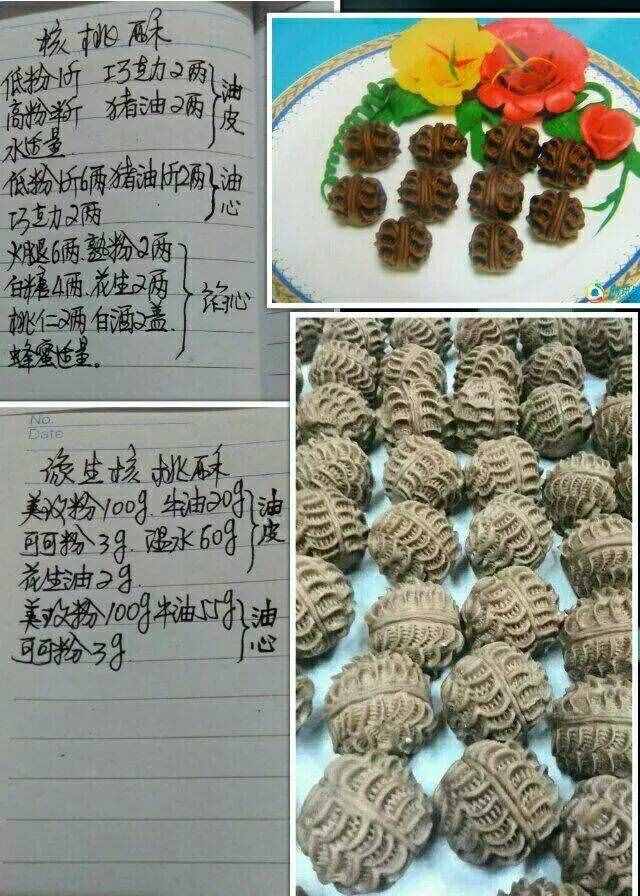 核桃酥
低粉1斤 巧克力2两
高粉半斤 猪油2两
水适量
油皮
低粉1斤6两 猪油1斤2两
巧克力2两
油心
火腿6两 熟粉2两
白糖4两 花生2两
桃仁2两 白酒2盖
蜂蜜适量。
馅心
No.
Date
核桃酥
美玫粉100g 牛油20g
可可粉3g. 温水60g
花生油2g
油皮
美玫粉100g 牛油55g
可可粉3g
油心